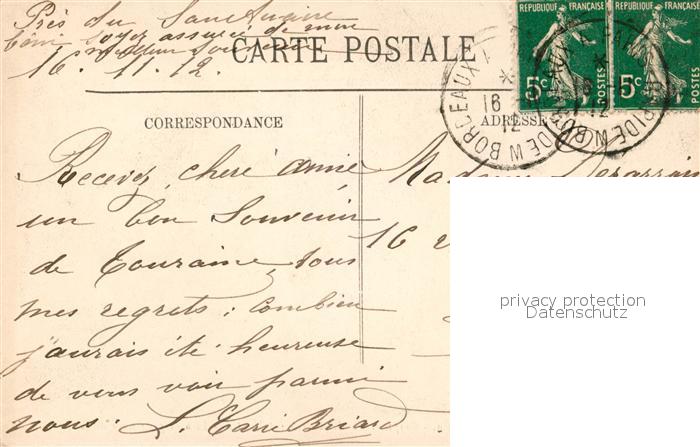 Près du
soyez assurée de mon
meilleur souvenir
16. 11. 12.
CARTE POSTALE
REPUBLIQUE FRANÇAISE
5c POSTES
REPUBLIQUE FRANÇAISE
5c POSTES
BORDEAUX
16
12
CORRESPONDANCE
ADRESSE
Recevez, chère amie,
un bon Souvenir
de Touraine, tous
mes regrets; combien
j'aurais été heureuse
de vous voir parmi
nous. L. Carré Briard
Madame
16
privacy protection
Datenschutz